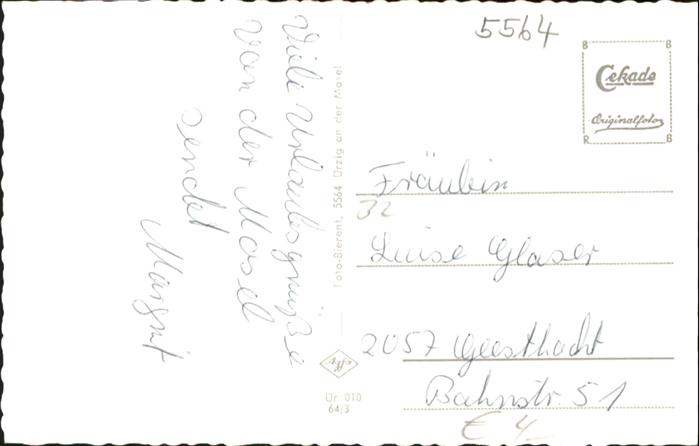 5564
B B
Cekade
Originalfoto
R B
Viele Urlaubsgrüße
von der Mosel
sendet
Margrit
Foto-Bierent, 5564 Ürzig an der Mosel
Agfa
Ur 010
64/3
Fräulein
32
Luise Glaser
2057 Geesthacht
Bahnstr. 51
€ 4,-